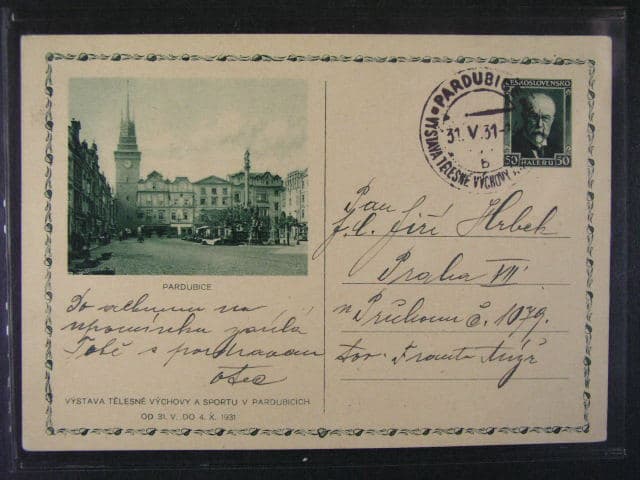 PARDUBICE
Do albumu na
upomínku zasílá
Tobě s pozdravem
otec
VÝSTAVA TĚLESNÉ VÝCHOVY A SPORTU V PARDUBICÍCH
OD 31. V. DO 4. X. 1931
PARDUBIC
31. V. 31
VÝSTAVA TĚLESNÉ VÝCHOVY
b
ČESKOSLOVENSKO
50 HALÉŘŮ 50
Pan
Jiří Hrbek
Praha VII
č. 1079.